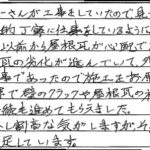 ーさんが工事をしていたので見
的丁寧に仕事をしているように
以前から屋根瓦が心配で
瓦の劣化が進んでいて、外
事であったので施工をお願
て壁のクラックや屋根の
続も進めてもらえました。
し割高な気がしますが
足しています。